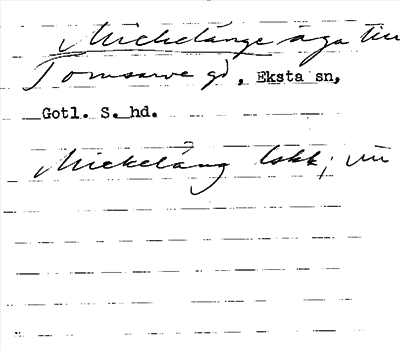 Mickelänge äga till
Tomsarve gd, Eksta sn,
Gotl. S. hd.
Mickeläng lokk;